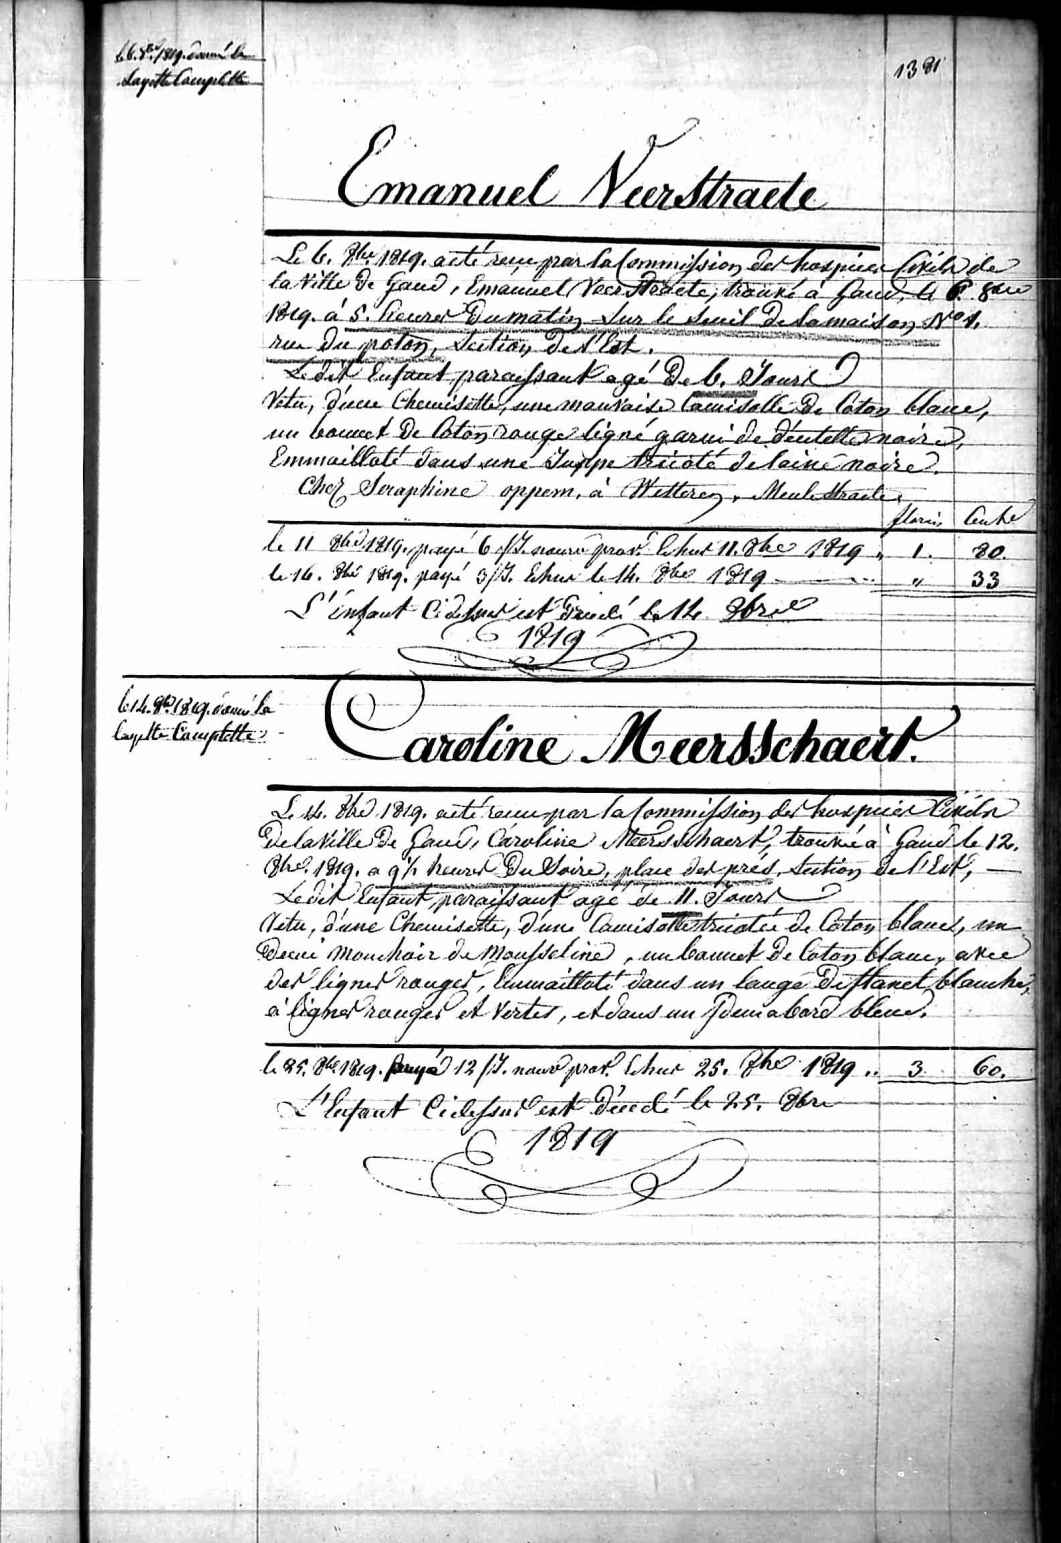 1381
Le 6. 8bre 1819. donné la
Layette Complette
Emanuel Veerstraete
Le 6. 8bre 1819. a été reçu par la Commission des hospices Civils de
la Ville de Gand, Emanuel Veerstraete, trouvé à Gand, le 6. 8bre
1819. à 5. heures Du matin sur le seuil de la maison No 1.
rue du poton, Section de l'Est.
Ledit Enfant paraissant agé De 6. Jours
Vetu, d'une Chemisette, une mauvaise Camisolle De Coton blanc,
un bonnet De Coton rouge ligné garni de déntelles noires,
Emmailloté dans une Juppe tricoté de laine noire.
Chez Seraphine oppem. à Wetteren, Meulestraete.
florins Cents
le 11 8bre 1819. payé 6 /J. nour. prov. Echus 11. 8bre 1819 " 1. 80.
le 16. 8bre 1819. payé 3/J. Echus le 14. 8bre 1819 " 33
L'énfant Cidessus est Décedé le 14 8bre
1819
le 14. 8bre 1819. donné la
Layette Complette
Caroline Meersschaert.
Le 14. 8bre 1819. a été reçu par la Commission des hospices Civils
De la Ville De Gand, Caroline Meersschaert, trouvé à Gand le 12.
8bre 1819. a 9½ heures Du Soire, place des prés, Section de l'Est,
Ledit Enfant paraissant agé de 11. Jours
Vetu, d'une Chemisette, d'une Camisolle tricotée de Coton blanc, un
Demi mouchoir de Mousseline, un bonnet De Coton blanc, avec
des lignes rouges, Emmailloté dans un lange De flanel blanche,
à lignes rouges et Vertes, et dans un Demi abord bleue.
le 25. 8bre 1819. payé 12 /J. nour. prov. Echus 25. 8bre 1819 .. 3 60.
L'Enfant Cidessus est Décedé le 25. 8bre
1819